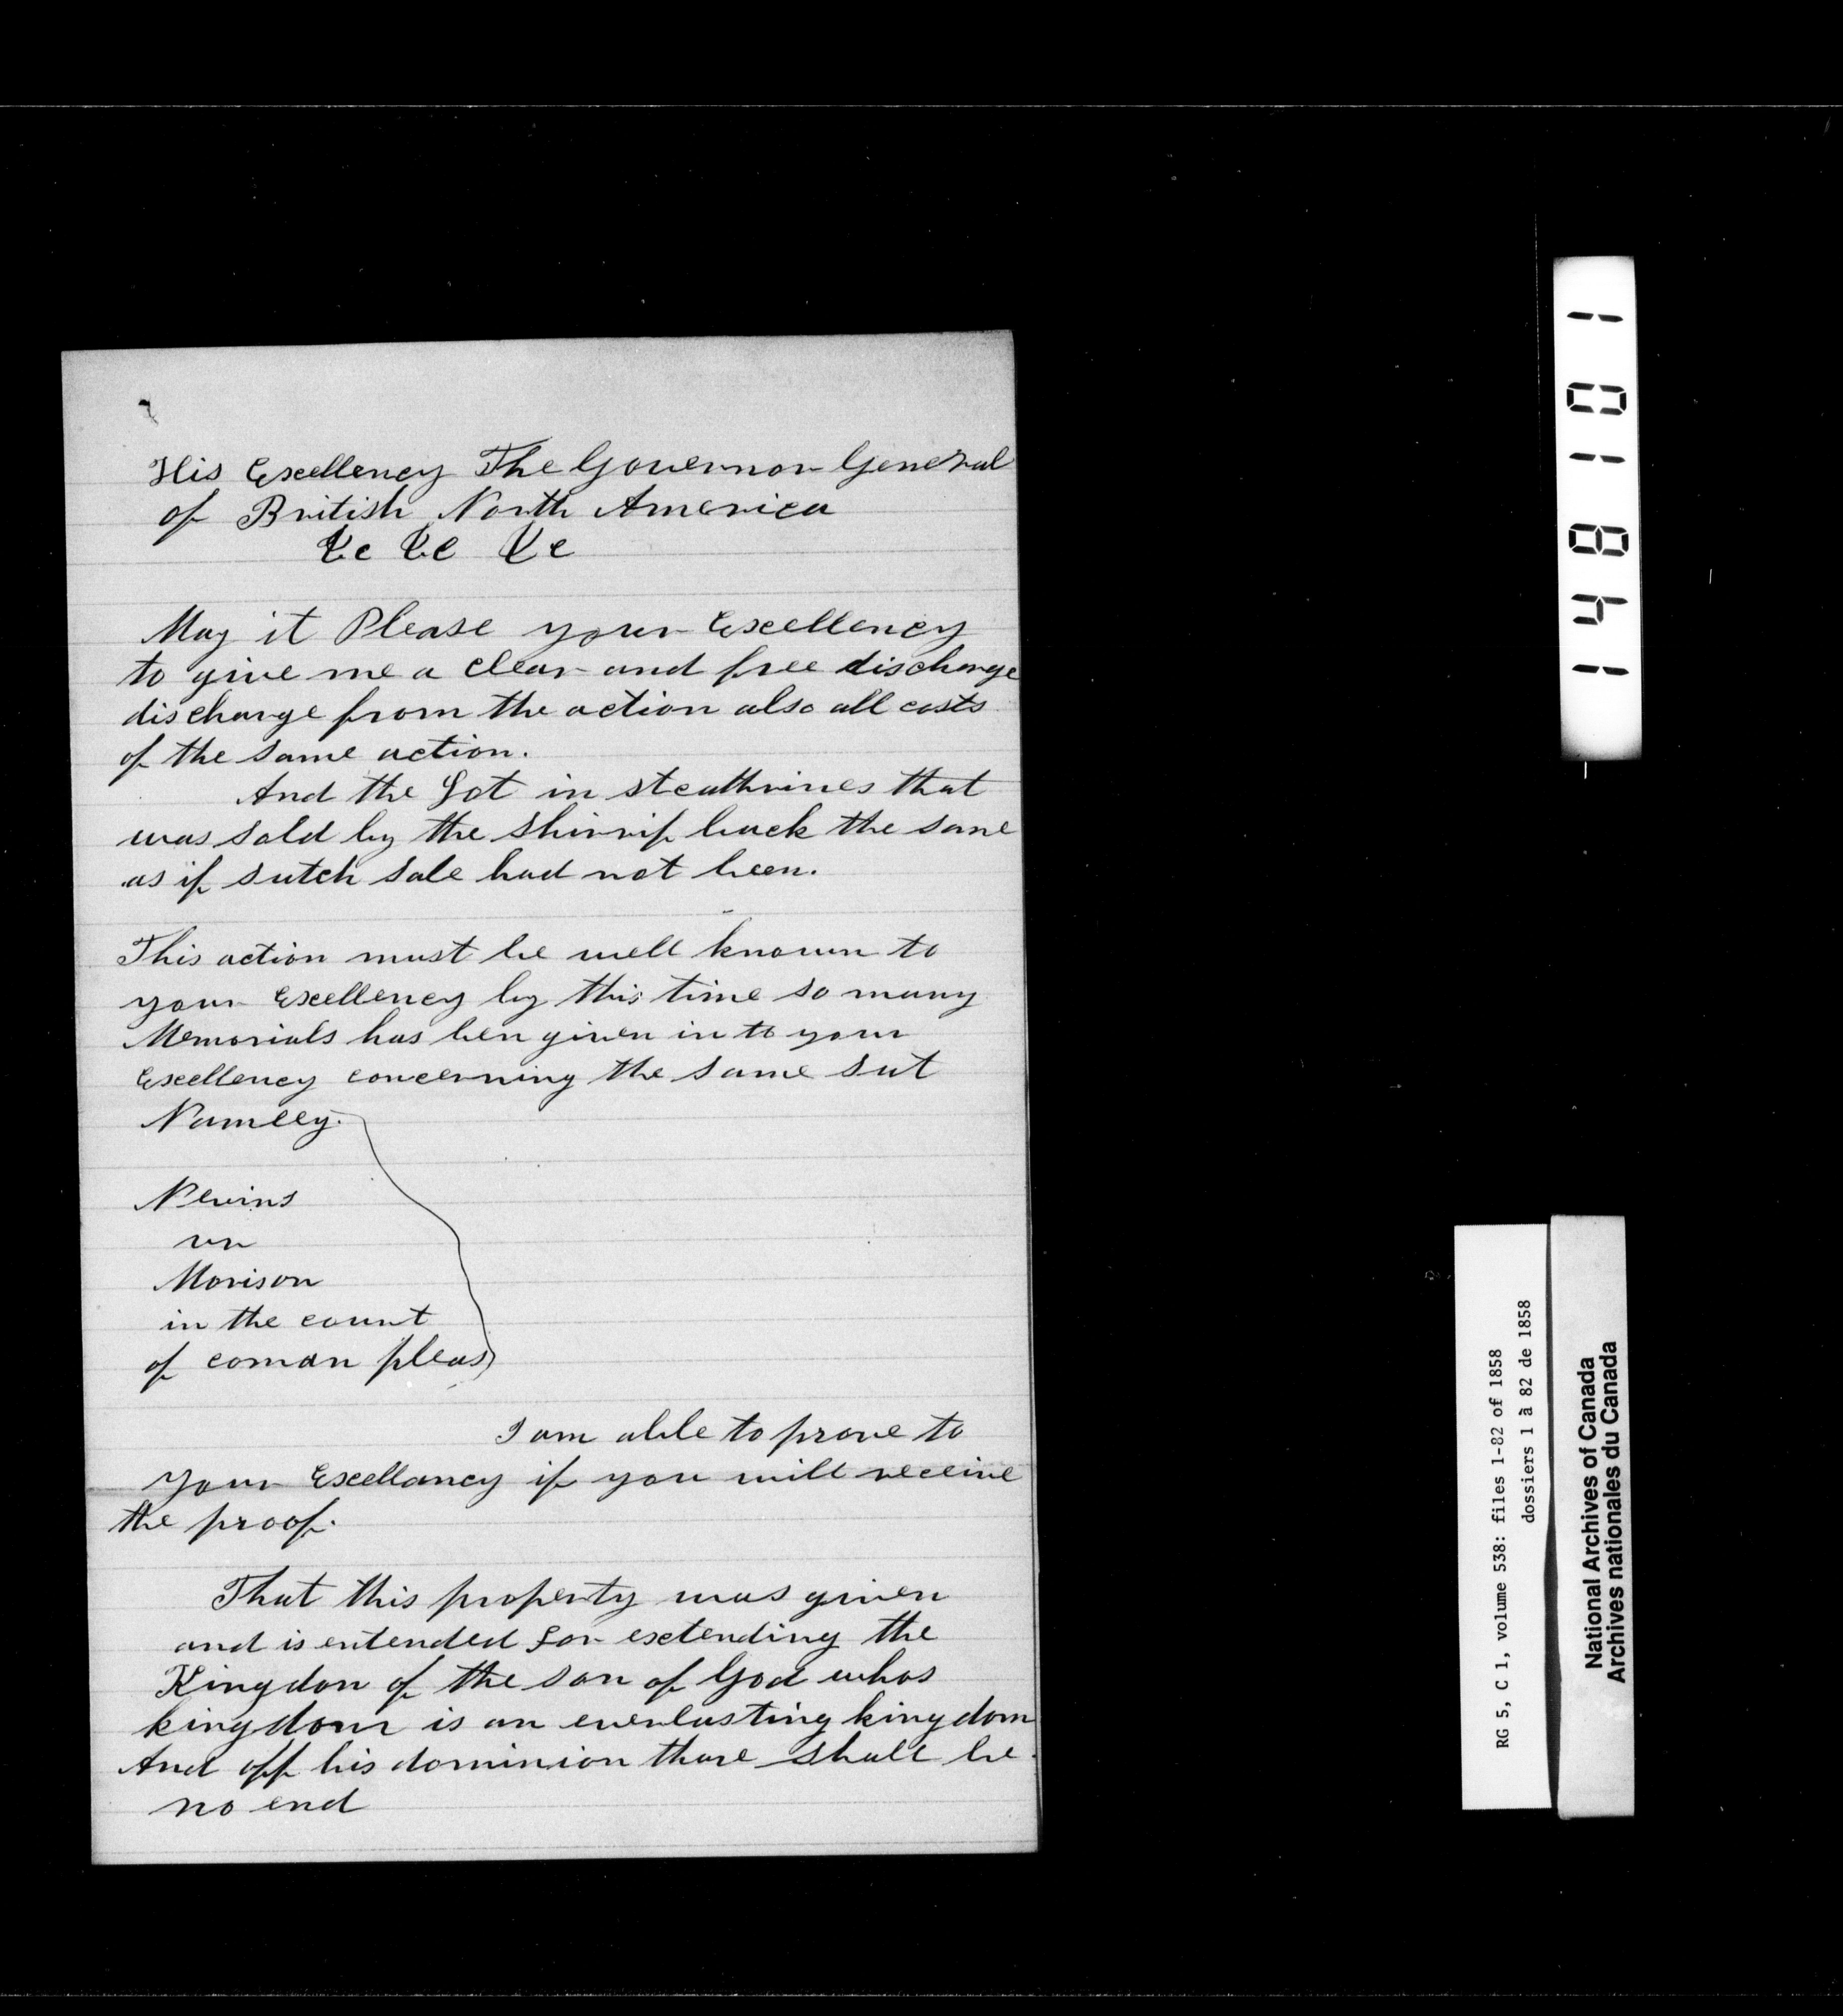 His Excellency The Governor General
of British North America
&c &c &c
May it Please your Excellency
to give me a clear and free discharge
discharge from the action also all costs
of the same action.
And the Lot in stcathrines that
was sold by the shirrif back the same
as if sutch sale had not been.
This action must be well known to
your Excellency by this time so many
Memorials has ben given in to your
Excellency concerning the same sut
Namley.
Nevins
vn
Morison
in the count
of coman pleas
I am able to prove to
your Excellancy if you will receive
the proof.
That this property was given
and is entended for extending the
Kingdon of the son of God whos
kingdom is an everlasting kingdom
And off his dominion thare shall be
no end
148101
RG 5, C 1, volume 538: files 1-82 of 1858
dossiers 1 à 82 de 1858
National Archives of Canada
Archives nationales du Canada